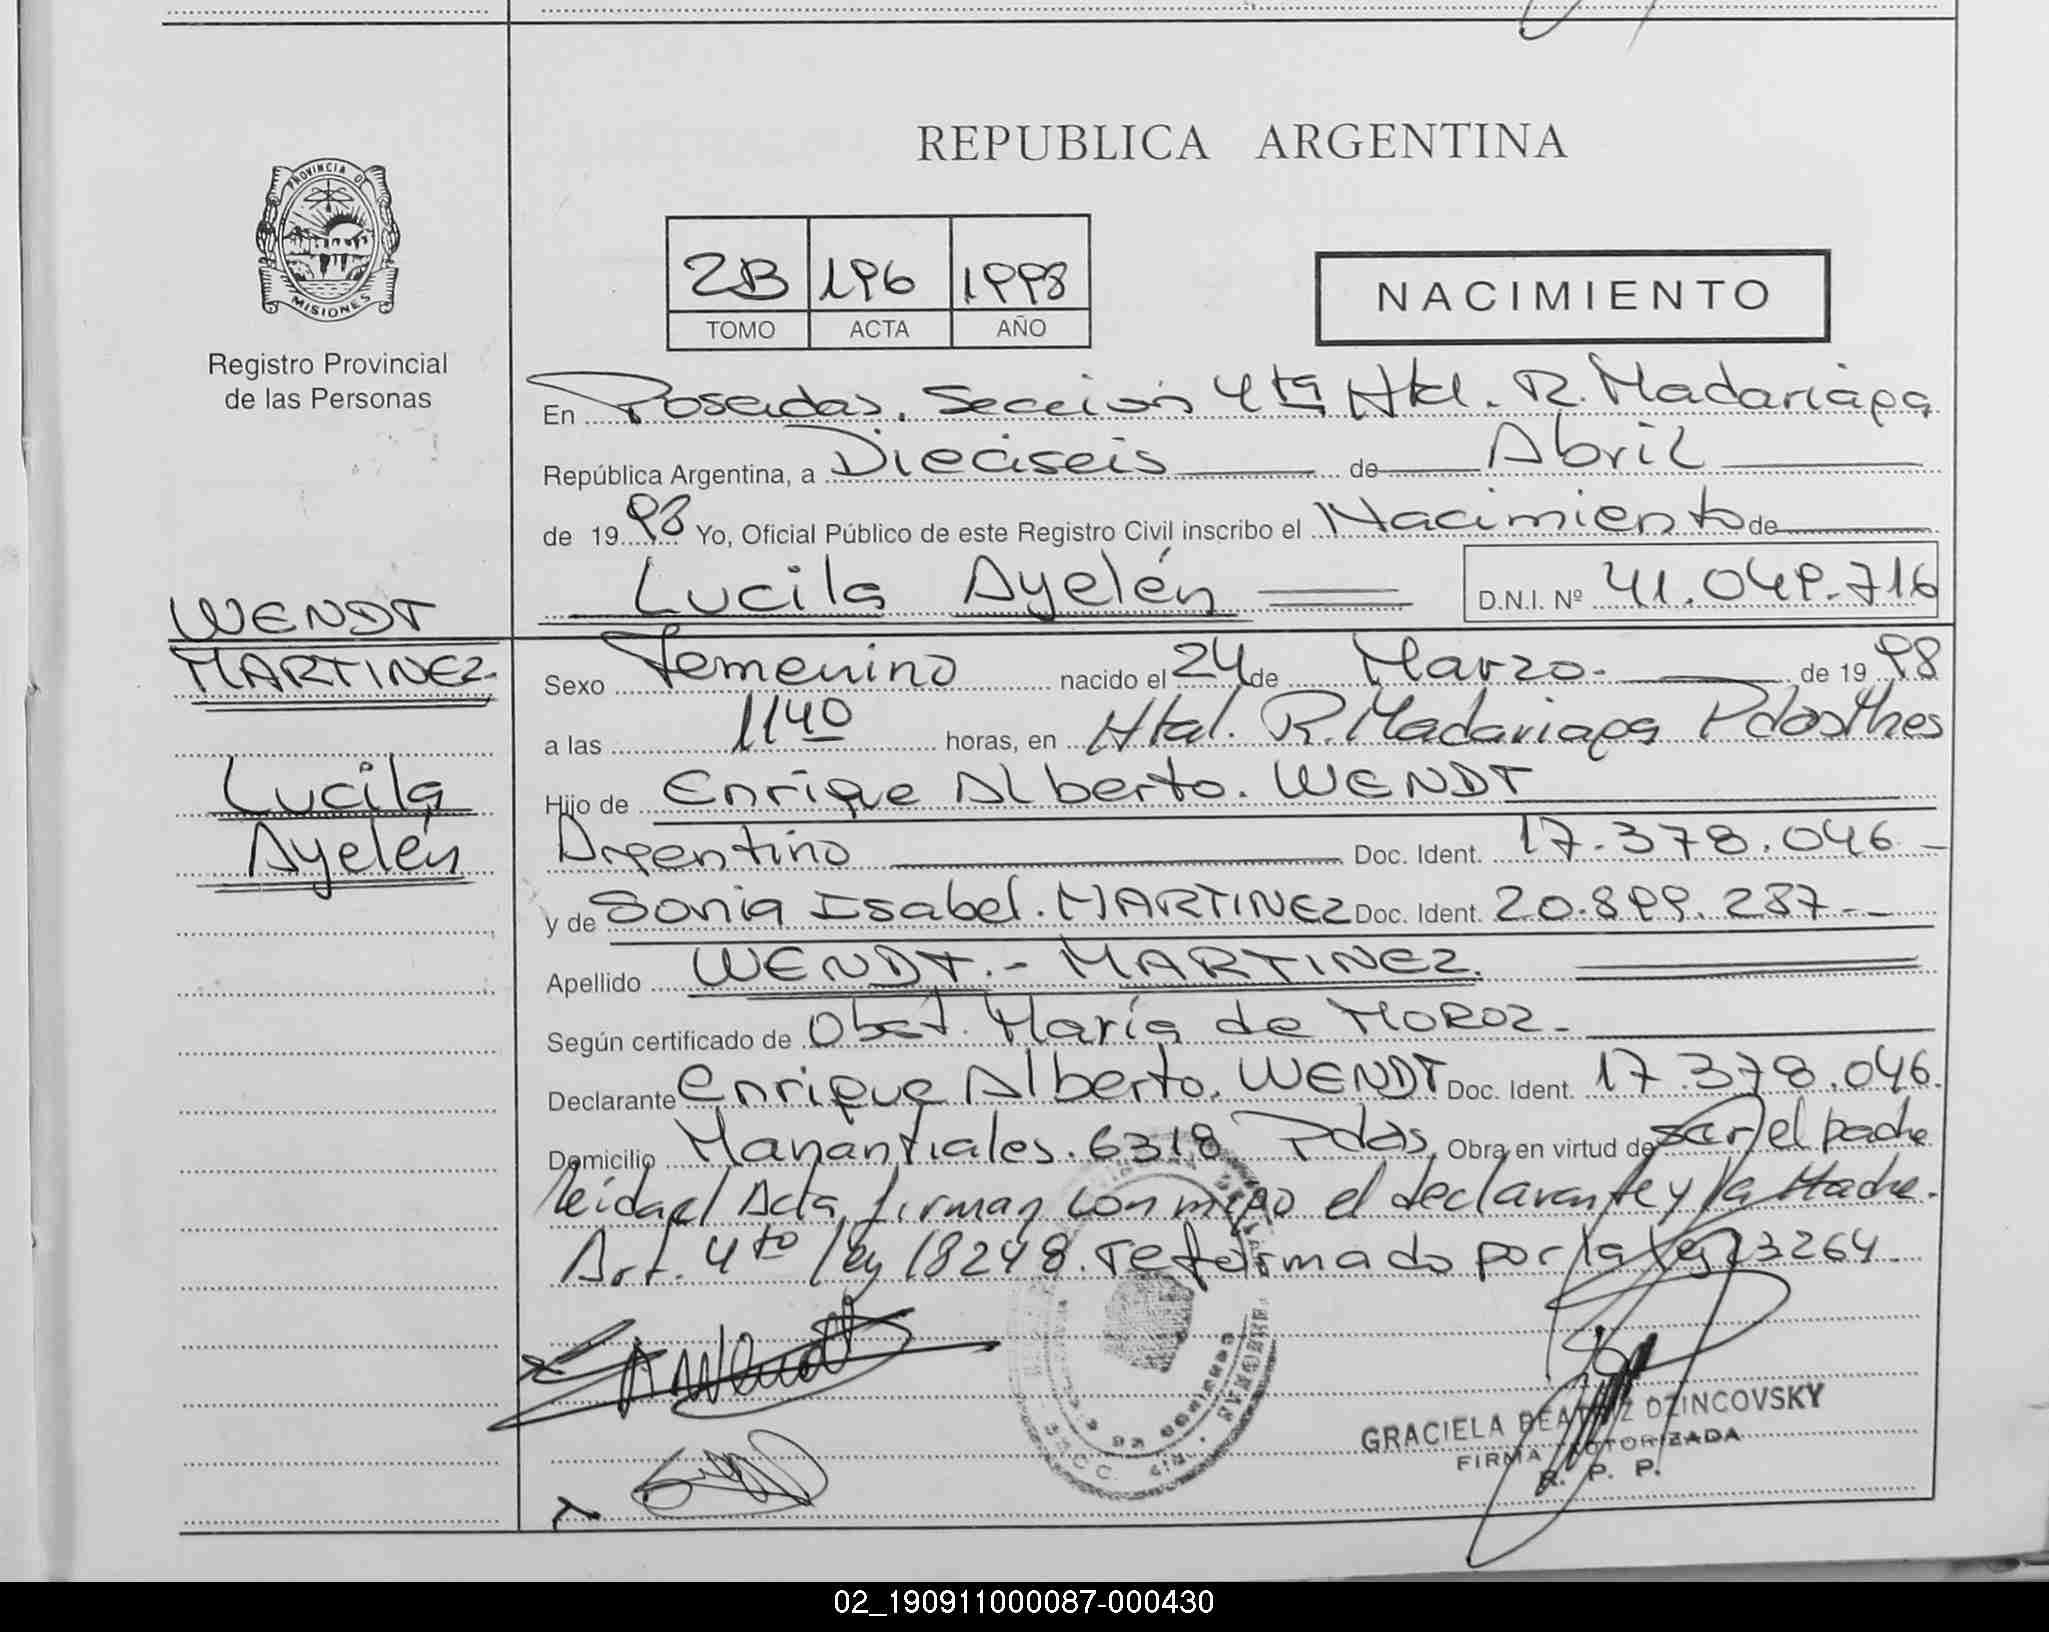 REPUBLICA ARGENTINA
PROVINCIA DE
MISIONES
Registro Provincial
de las Personas
2B 196 1998
TOMO ACTA AÑO
NACIMIENTO
En Posadas. Sección 4ta Htal. R. Madariaga
República Argentina, a Dieciseis de Abril
de 1998 Yo, Oficial Público de este Registro Civil inscribo el Nacimiento de
Lucila Ayelén D.N.I. Nº 41.049.716
WENDT
MARTINEZ
Lucila
Ayelén
Sexo Femenino nacido el 24 de Marzo. de 1998
a las 1140 horas, en Htal. R. Madariaga Pdas Mnes
Hijo de Enrique Alberto. WENDT
Argentino Doc. Ident. 17.378.046
y de Sonia Isabel. MARTINEZ Doc. Ident. 20.899.237
Apellido WENDT.- MARTINEZ.
Según certificado de Obst. María de MOROZ.
Declarante Enrique Alberto. WENDT Doc. Ident. 17.378.046.
Domicilio Manantiales. 6318 Pdas. Obra en virtud de ser el padre
leida el Acta, firman conmigo el declarante y la Madre.
Art. 4to ley 18248. reformado por la ley 23264.
A Wendt
GRACIELA BEATRIZ DZINCOVSKY
FIRMA AUTORIZADA
R. P. P.
02_190911000087-000430